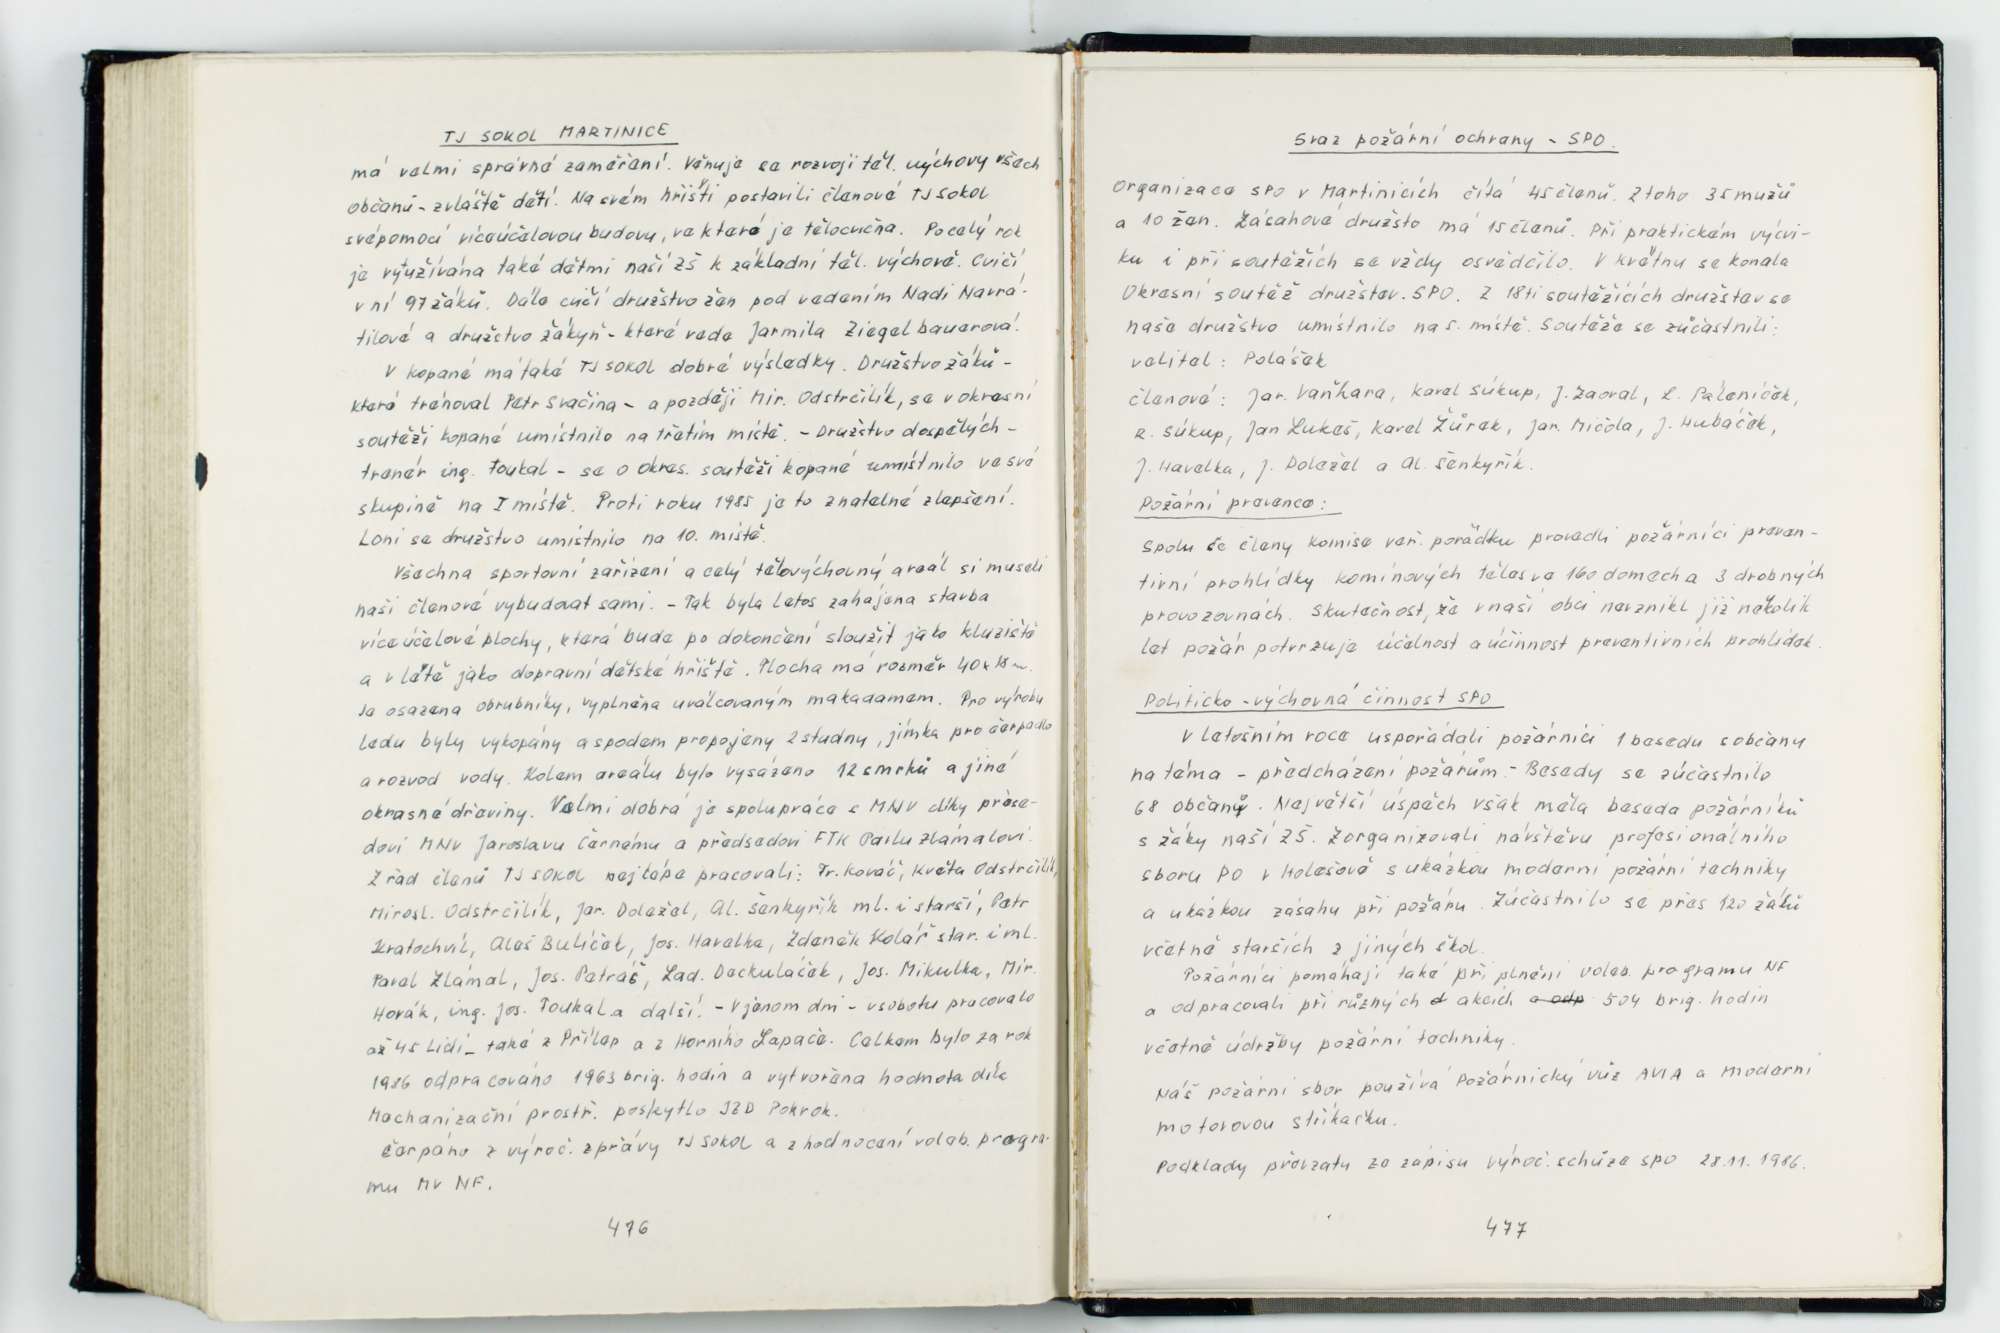 TJ SOKOL MARTINICE
má velmi správné zaměření. Věnuje se rozvoji těl. výchovy všech
občanů - zvláště dětí. Na svém hřišti postavili členové TJ SOKOL
svépomocí víceúčelovou budovu, ve které je tělocvična. Po celý rok
je využívána také dětmi naší ZŠ k základní těl. výchově. Cvičí
v ní 97 žáků. Dále cvičí družstvo žen pod vedením Nadi Navrá-
tilové a družstvo žákyň - které vede Jarmila Ziegelbauerová.
V kopané má také TJ SOKOL dobré výsledky. Družstvo žáků -
které trénoval Petr Svačina - a později Mir. Odstrčilík, se v okresní
soutěži kopané umístnilo na třetím místě. - Družstvo dospělých -
trenér ing. Toukal - se o okres. soutěži kopané umístnilo ve své
skupině na I místě. Proti roku 1985 je to znatelné zlepšení.
Loni se družstvo umístnilo na 10. místě.
Všechna sportovní zařízení a celý tělovýchovný areál si museli
naši členové vybudovat sami. - Tak byla letos zahájena stavba
víceúčelové plochy, která bude po dokončení sloužit jako kluziště
a v létě jako dopravní dětské hřiště. Plocha má rozměr 40 x 18 m.
Je osazena obrubníky, vyplněna uválcovaným makadamem. Pro výrobu
ledu byly vykopány a spodem propojeny 2 studny, jímka pro čerpadlo
a rozvod vody. Kolem areálu bylo vysázeno 12 smrků a jiné
okrasné dřeviny. Velmi dobrá je spolupráce s MNV díky předse-
dovi MNV Jaroslavu Černému a předsedovi FTK Pavlu Zlámalovi.
Z řad členů TJ SOKOL nejlépe pracovali: Fr. Kováč, Květa Odstrčilík,
Mirosl. Odstrčilík, Jar. Doležel, Al. Šenkyřík ml. i starší, Petr
Kratochvíl, Aleš Bulíček, Jos. Havelka, Zdeněk Kolář star. i ml.
Pavel Zlámal, Jos. Petráš, Lad. Dackuláček, Jos. Mikulka, Mir.
Horák, ing. Jos. Toukal a další. - V jenom dni - v sobotu pracovalo
až 45 lidí - také z Přílep a z Horního Lapače. Celkem bylo za rok
1986 odpracováno 1963 brig. hodin a vytvořena hodnota díla
Mechanizační prostř. poskytlo JZD Pokrok.
Čerpáno z výroč. zprávy TJ SOKOL a zhodnocení voleb. progra-
mu MV NF.
476
Svaz požární ochrany - SPO.
Organizace SPO v Martinicích čítá 45 členů. Z toho 35 mužů
a 10 žen. Zásahové družsto má 15 členů. Při praktickém výcvi-
ku i při soutěžích se vždy osvědčilo. V květnu se konala
Okresní soutěž družstev. SPO. Z 18ti soutěžících družstev se
naše družstvo umístnilo na 5. místě. Soutěže se zúčastnili:
velitel: Polášek
členové: Jar. Vaňhara, Karel Súkup, J. Zaoral, L. Páleníček,
R. Súkup, Jan Lukeš, Karel Žůrek, Jar. Mičola, J. Hubáček,
J. Havelka, J. Doležel a Al. Šenkyřík.
Požární prevence:
Spolu se členy komise veř. pořádku provedli požárníci preven-
tivní prohlídky komínových těles ve 160 domech a 3 drobných
provozovnách. Skutečnost, že v naší obci nevznikl již několik
let požár potvrzuje účelnost a účinnost preventivních prohlídek.
Politicko - výchovná činnost SPO
V letošním roce uspořádali požárníci 1 besedu s občany
na téma - předcházení požárům. - Besedy se zúčastnilo
68 občanů. Největší úspěch však měla beseda požárníků
s žáky naší ZŠ. Zorganizovali návštěvu profesionálního
sboru PO v Holešově s ukázkou moderní požární techniky
a ukázkou zásahu při požáru. Zúčastnilo se přes 120 žáků
včetně starších z jiných škol.
Požárníci pomáhají také při plnění voleb. programu NF
a odpracovali při různých akcích a odp 504 brig. hodin
včetně údržby požární techniky.
Náš požární sbor používá Požárnický vůz AVIA a moderní
motorovou stříkačku.
Podklady převzaty ze zápisu výroč. schůze SPO 28.11.1986.
477